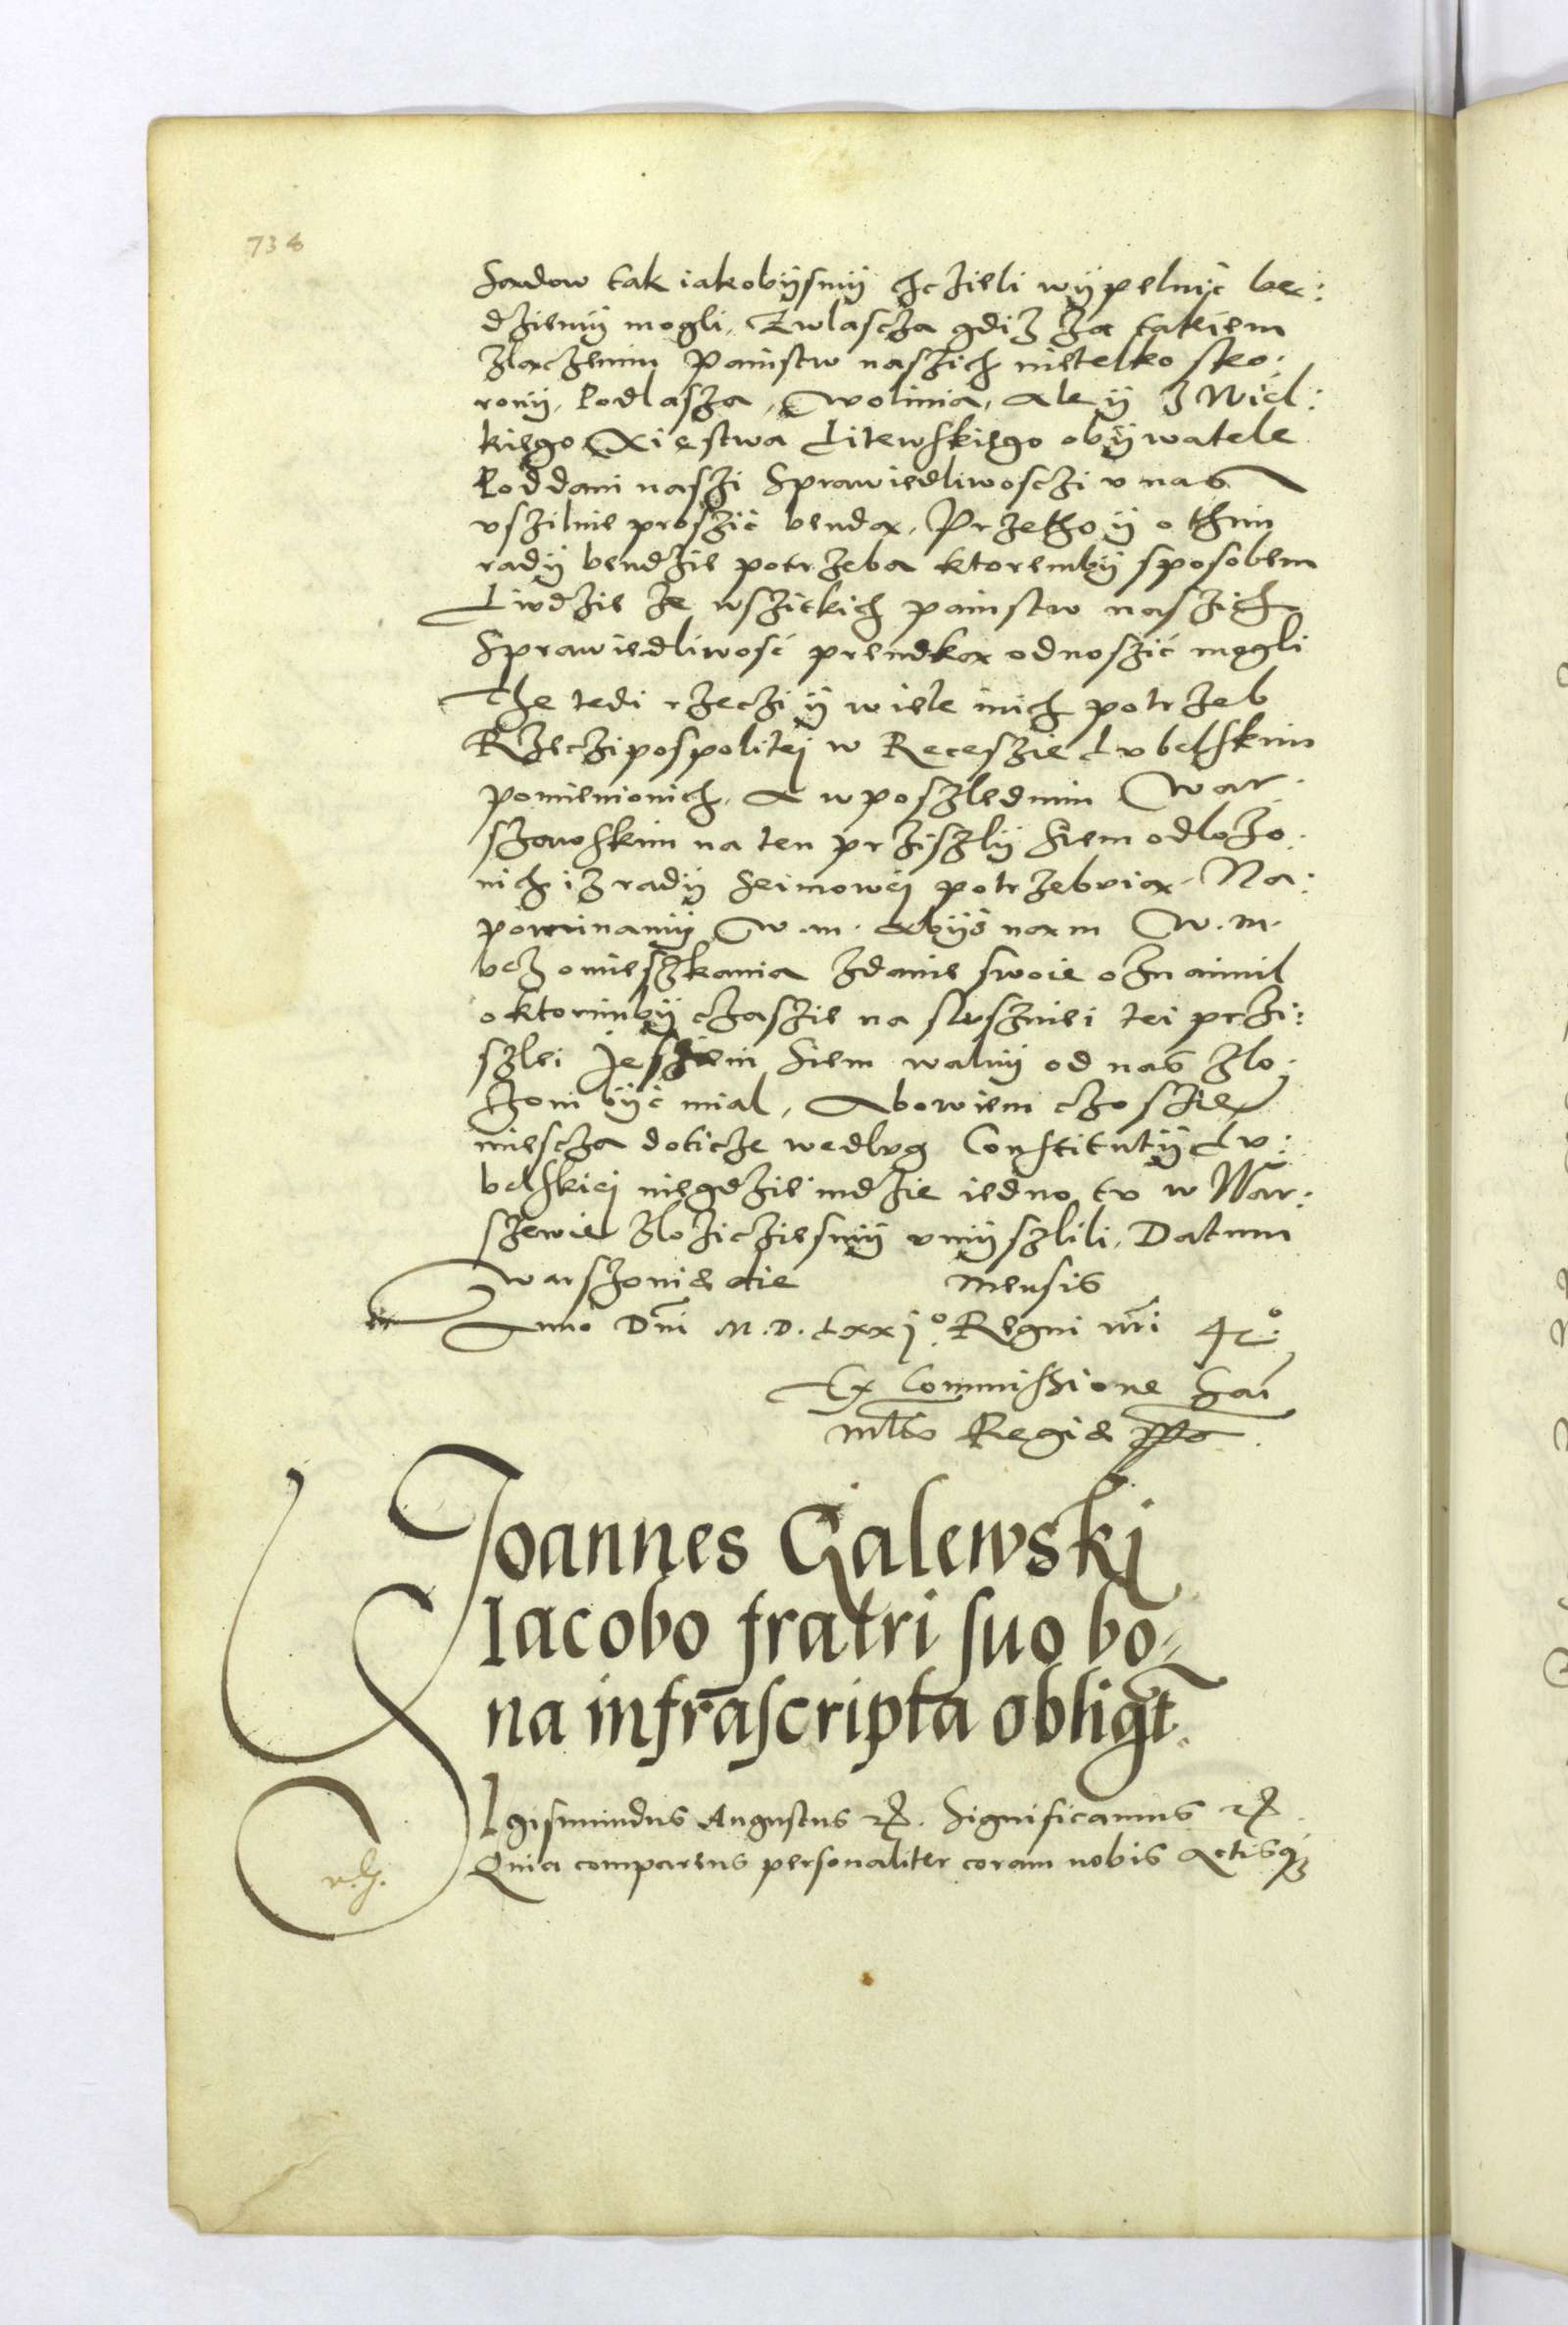 738
Sądow tak iakobÿsmÿ chczieli wÿpelnic bę:
dziemÿ mogli, Zwlascza gdiz za takiem
zlączenim Painstw naszich nietelko sko:
ronÿ, Podlasza, Wolinia, Ale ÿ z Wiel:
kiego Xiestwa Litewskiego obÿwatele
Poddani naszi Sprawiedliwosczi v nas
vszilnie proszić bendą, Przetho ÿ o thim
radÿ bendzie potrzeba ktorembÿ sposobem
Liudzie ze wszitkich painstw naszich
Sprawiedliwosć prendką odnoszić mogli
The tedi rzeczi ÿ wiele inich potrzeb
Rzeczipospolitej w Receszie Lubelskim
pomienionich, A w poszlednim War:
szawskim na ten prziszlÿ Siem odlozo:
nich iz radÿ Seimowej potrzebuią, Na:
pominamÿ W. m. Abÿs nam W. M.
bez omieszkania zdanie swoie oznaimil
o ktorimbÿ czaszie na sluszniei tei przi:
szlei Jeszieni Siem walnÿ od nas zlo:
zoni bÿc mial, Abowiem czo szie
miescza doticze wedlug Constitutÿ Lu:
belskiej niegdzie indzie iedno tu w War:
szewie zloziczesmÿ umÿszlili, Datum
Warszoviæ die mensis
Anno Dni M.D.LXXj° Regni nri 42°
Ex Commissione Sac
mtis Regiæ ppa
Joannes Galewskj
Iacobo fratri suo bo=
na infrascripta obligt.
Sigismundus Augustus etc. Significamus etc.
Quia comparens personaliter coram nobis Actisq3